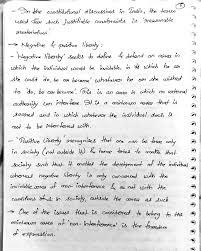 - In the constitutional discussions in India, the term
used for such justifiable constraints is 'reasonable
restrictions'.
→ Negative & positive liberty:
- 'Negative liberty' seeks to define & defend an area in
which the individual would be inviolable, in which he or
she could do, be or become whatever he or she wished
to do, be or become. This is an area in which no external
authority can interfere. It is a minimum area that is
sacred and in which whatever the individual does, is
not to be interfered with.
- 'Positive liberty' recognises that one can be free only
in society (not outside it) & hence tries to make that
society such that it enables the development of the individual
whereas negative liberty is only concerned with the
inviolable area of non-interference & not with the
conditions in society, outside the area as such.
→ One of the issues that is considered to belong to the
minimum area of 'non-interference' is the freedom
of expression.